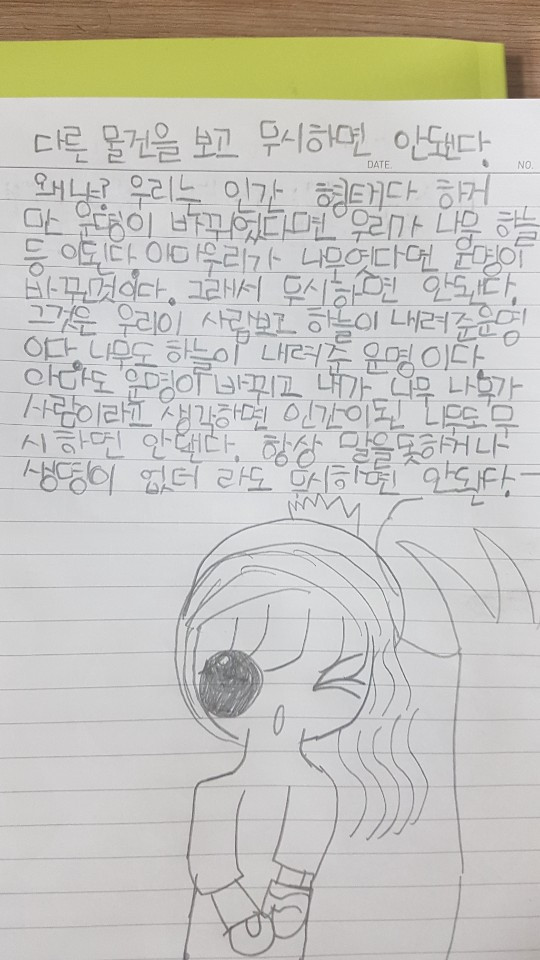 다른 물건을 보고 무시하면 안됀다.
DATE. NO.
왜냐? 우리는 인간 형태다 하거
만 운명이 바뀌었다면 우리가 나무 하늘
등 이된다 아마우리가 나무엿다면 운명이
바꾼것이다. 그래서 무시하면 안됀다.
그것은 우리이 사람보고 하늘이 내려준운명
이다 나무도 하늘이 내려준 운명이다
아마도 운명이 바뀌고 내가 나무 나무가
사람이라고 생각하면 인간이된 나무도 무
시하면 안됀다. 항상 말을못하거나
생명이 없더라도 무시하면 안됀다.